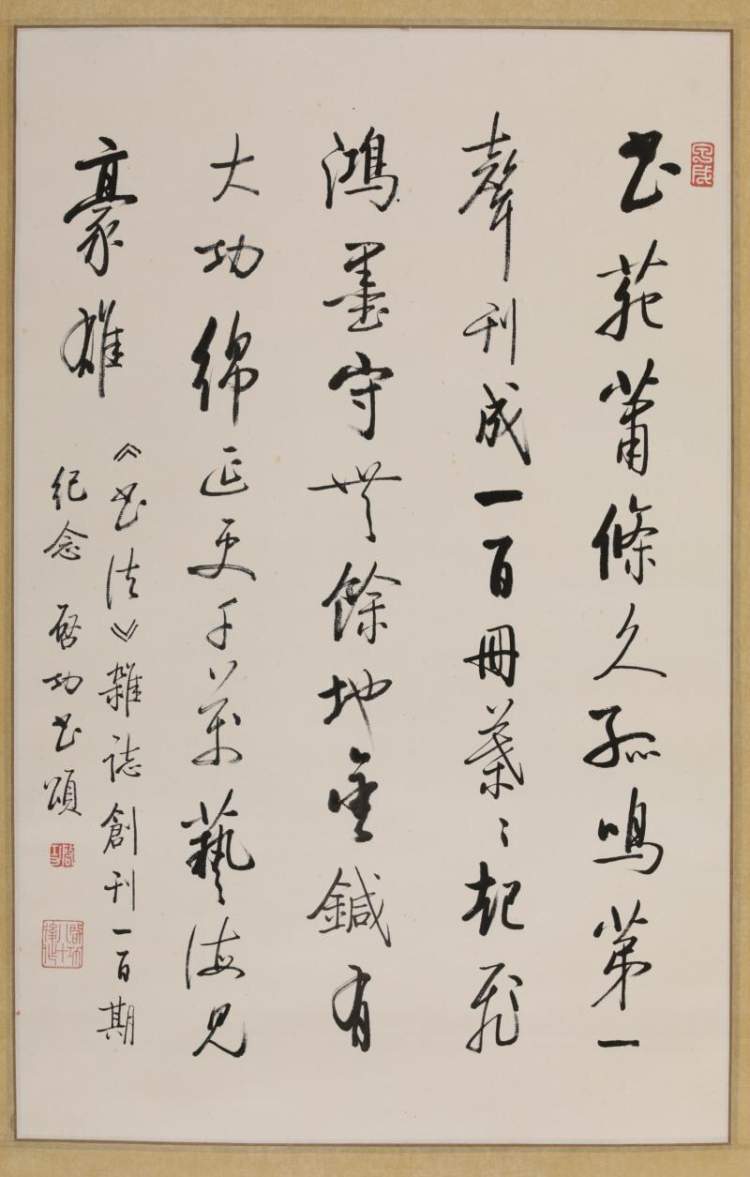 书苑萧條久孤鳴第一
聲刊成一百冊葉〻起飛
鴻墨守無餘地金鍼有
大功綿延更千萬藝海見
豪雄
《书法》雜誌創刊一百期
紀念 啓功书頌